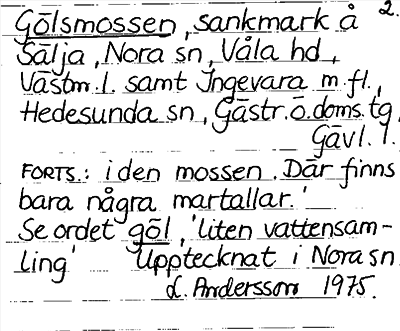 2.
Gölsmossen, sankmark å
Sälja, Nora sn, Våla hd,
Västm. l. samt Ingevara m.fl.,
Hedesunda sn, Gästr. ö. doms. tg,
Gävl. l.
FORTS.: i den mossen. Där finns
bara några martallar.'
Se ordet göl, 'liten vattensam-
ling' Upptecknat i Nora sn
L. Andersson 1975.